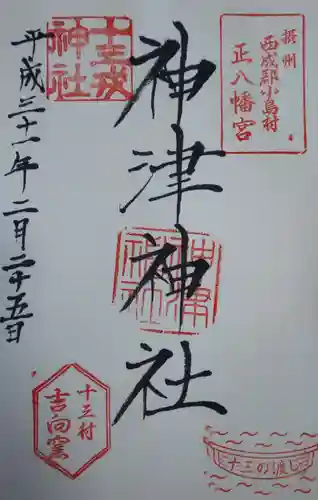 摂州
西成郡小島村
正八幡宮
神津神社
神津神社
十三戎
神社
平成三十一年二月二十五日
十三村
吉向窯
十三の渡し